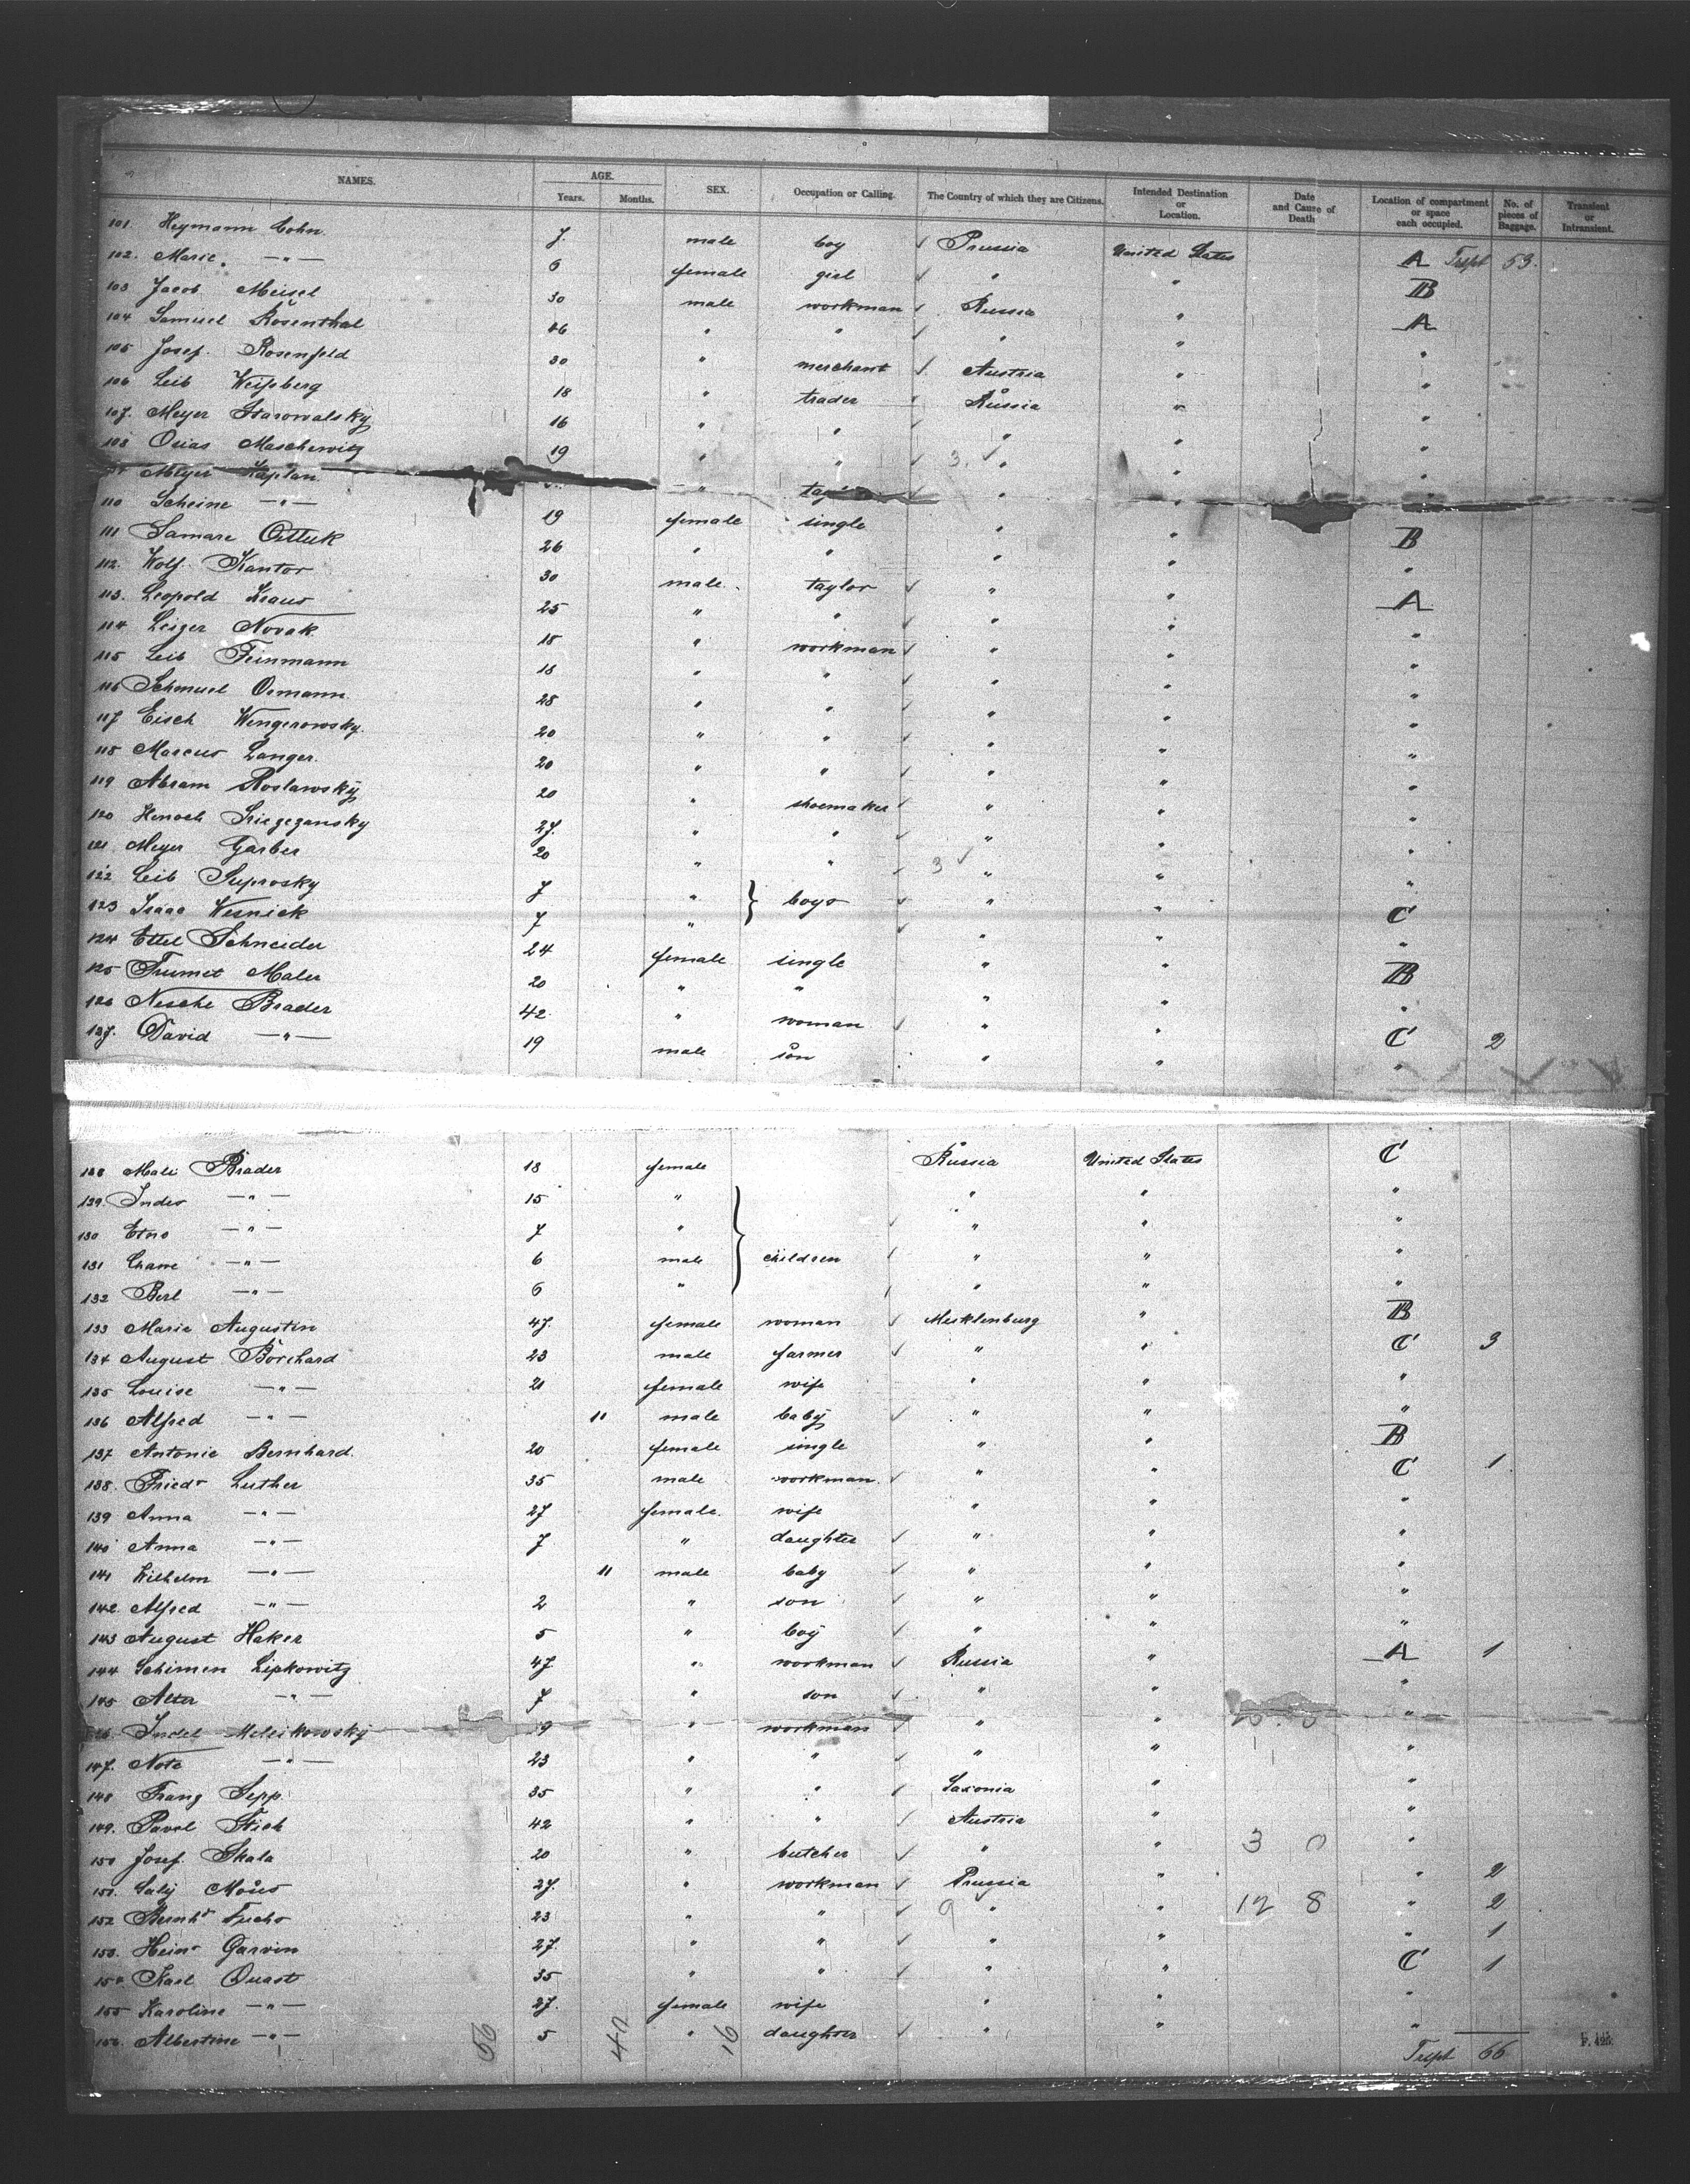 NAMES. AGE. Years. Months. SEX. Occupation or Calling. The Country of which they are Citizens. Intended Destination or Location. Date and Cause of Death Location of compartment or space each occupied. No. of pieces of Baggage. Transient or Intransient.
101. Heymann Cohn 7. male boy ✓ Prussia United States A Tspt 53.
102. Marie — " — 6 female girl ✓ " " B
103 Jacob Meisel 30 male workman ✓ Russia " A
104 Samuel Rosenthal 26 " " ✓ " " "
105 Josef. Rosenfeld 30 " merchant ✓ Austria " "
106 Leib Weissberg 18 " trader ✓ Russia " "
107. Meyer Starowalsky 16 " " ✓ " " "
108 Osias Maschewitz 19 " " ✓ 3. ✓ " " "
Meyer Kaplan " ✓ " "
110 Scheine — " — 19 female single " " B
111 Samare 26 " " " " "
112. Wolf Kantor 30 male taylor ✓ " " A
113. Leopold Kraus 25 " " ✓ " " "
114 Leizer Novak 18 " workman ✓ " " "
115 Leib Feinmann 18 " " ✓ " " "
116 Schmuel Osmann 28 " " ✓ " " "
117 Eisch Wengerowsky. 20 " " ✓ " " "
118 Marcus Langer. 20 " " ✓ " " "
119 Abram Roslawsky 20 " shoemaker ✓ " " "
120 Henoch 27. " " ✓ " " "
121 Meyer Garber 20 " " ✓ 3 ✓ " " "
122 Leib Suprosky 7 " } boys ✓ " " C
123 Isaac Wesnick 7 " ✓ " " "
124 Ettel Schneider 24 female single " " B
125 Trumet Maler 20 " " " " "
126 Nesche Brader 42 " woman ✓ " " C 2
127. David — " — 19 male son " " "
128 Mali Brader 18 female Russia United States C
129. Indes — " — 15 " " " "
130 Etno — " — 7 " ✓ " " "
131 Chane — " — 6 male } children ✓ " " "
132 Berl — " — 6 " " " "
133 Marie Augustin 47. female woman ✓ Mecklenburg " B
134 August Borchard 23 male farmer ✓ " " C 3
135 Louise — " — 21 female wife " " "
136 Alfred — " — 11 male baby ✓ " " "
137 Antonie Bernhard. 20 female single " " B
138. Friedr Luther 35 male workman. ✓ " " C 1
139 Anna — " — 27 female. wife " " "
140 Anna — " — 7 " daughter ✓ " " "
141 Wilhelm — " — 11 male baby ✓ " " "
142. Alfred — " — 2 " son ✓ " " "
143 August Haker 5 " boy ✓ " " "
144 Schimen Lipkowitz 47 " workman ✓ Russia " A 1
145 Alter — " — 7 " son ✓ " " "
146. Indel Meleikowsky 19 " workman ✓ " " "
147. Note — " — 23 " " ✓ " " "
148 Franz Sepp. 35 " " ✓ Saxonia " "
149. Pavel Stich 42 " " ✓ Austria " "
150 Josef. Skala 20 " butcher ✓ " " 3 0 "
151. Saly 27. " workman ✓ Prussia " " 2
152 Bernhd Fuchs 23 " " ✓ 9 " " 12 8 " 2
153. Heinr Garvin 27. " " ✓ " " " 1
154 Karl Quast 35 " " ✓ " " C 1
155 Karoline — " — 27. female wife " " "
156. Albertine — " — 5 " daughter ✓ " " "
56 40 16 Tspt 66